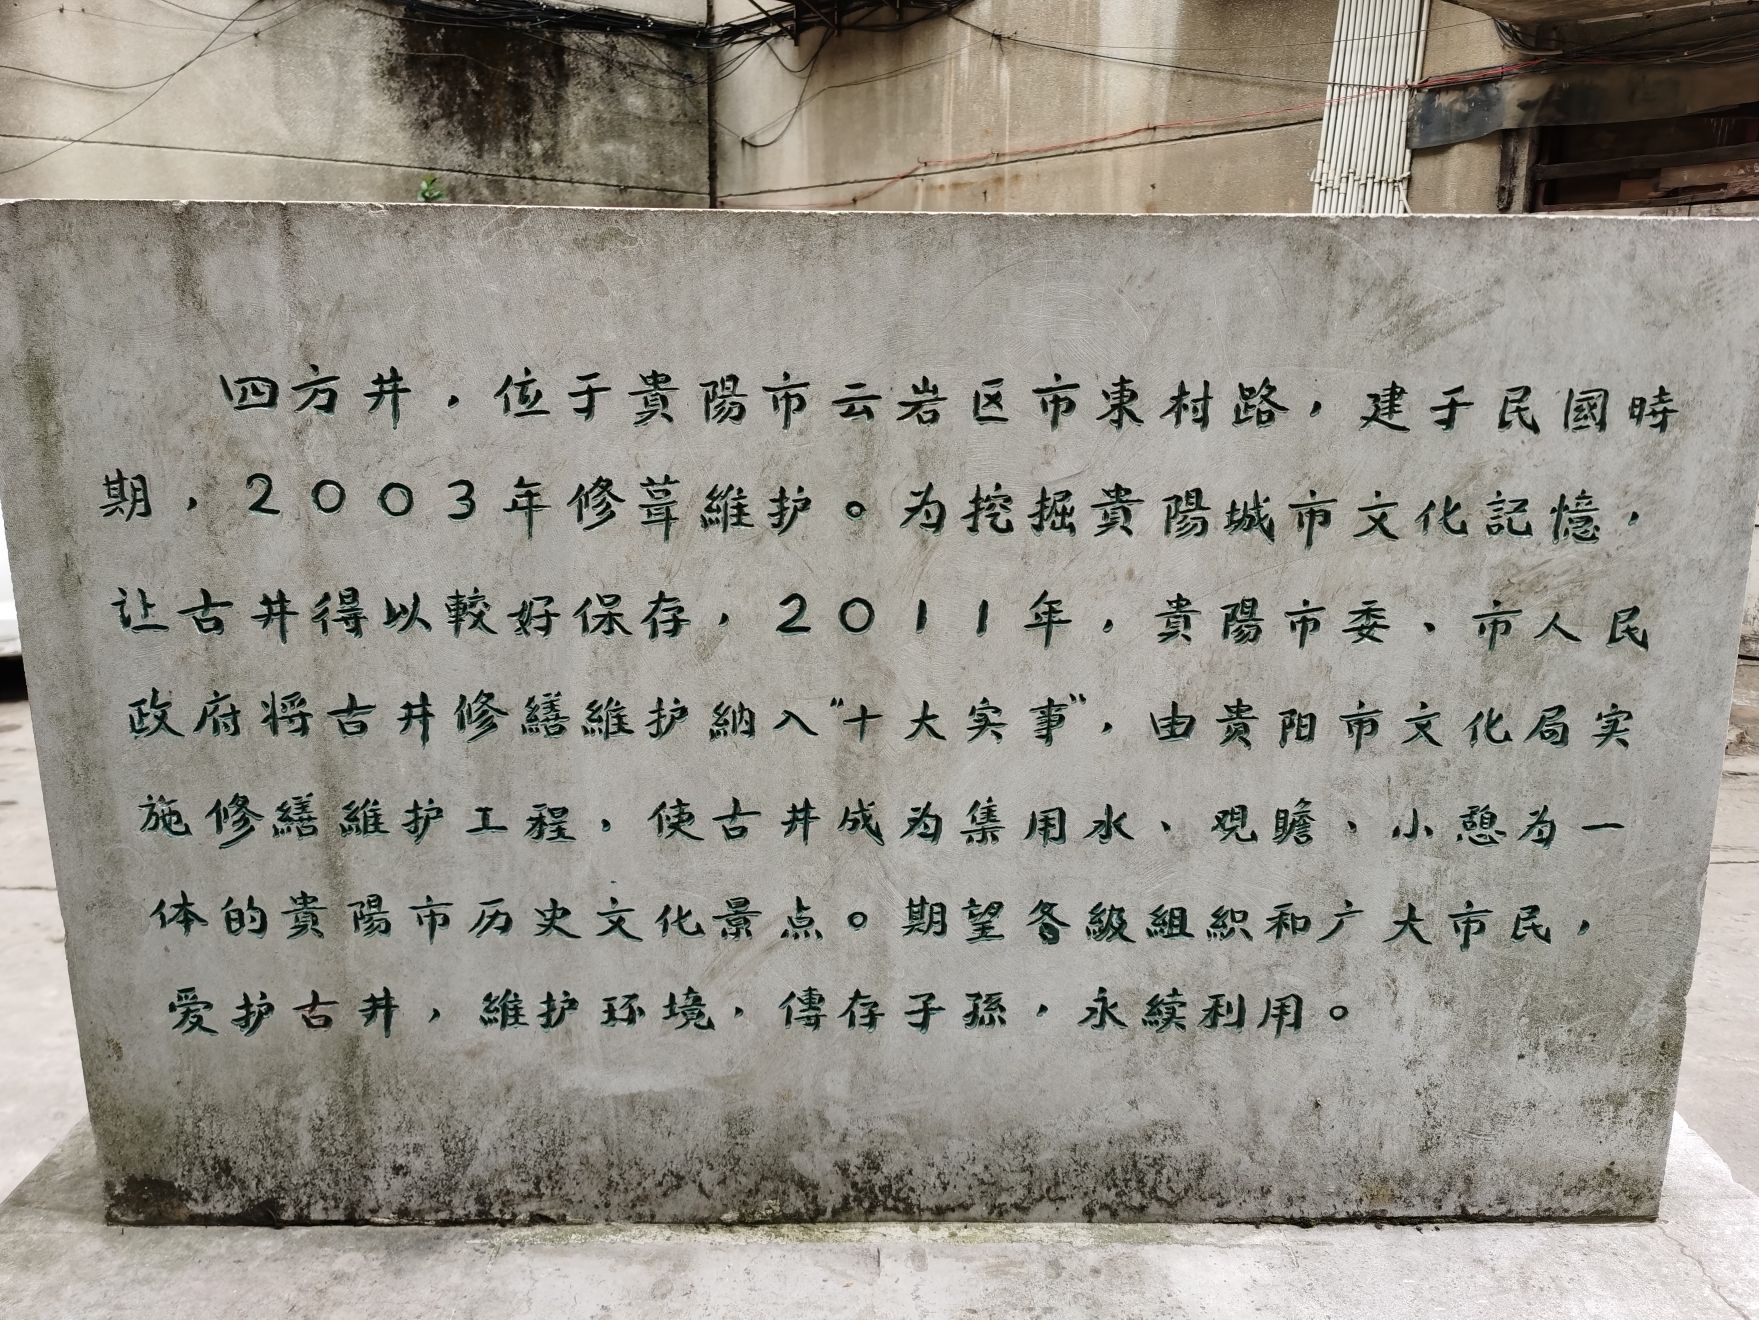 四方井，位于貴陽市云岩区市東村路，建于民國時
期，2003年修葺維护。为挖掘貴陽城市文化記憶，
让古井得以較好保存，2011年，貴陽市委、市人民
政府将古井修繕維护納入“十大实事”，由貴阳市文化局实
施修繕維护工程，使古井成为集用水、观瞻、小憩为一
体的貴陽市历史文化景点。期望各級組織和广大市民，
爱护古井，維护环境，傳存子孫，永續利用。